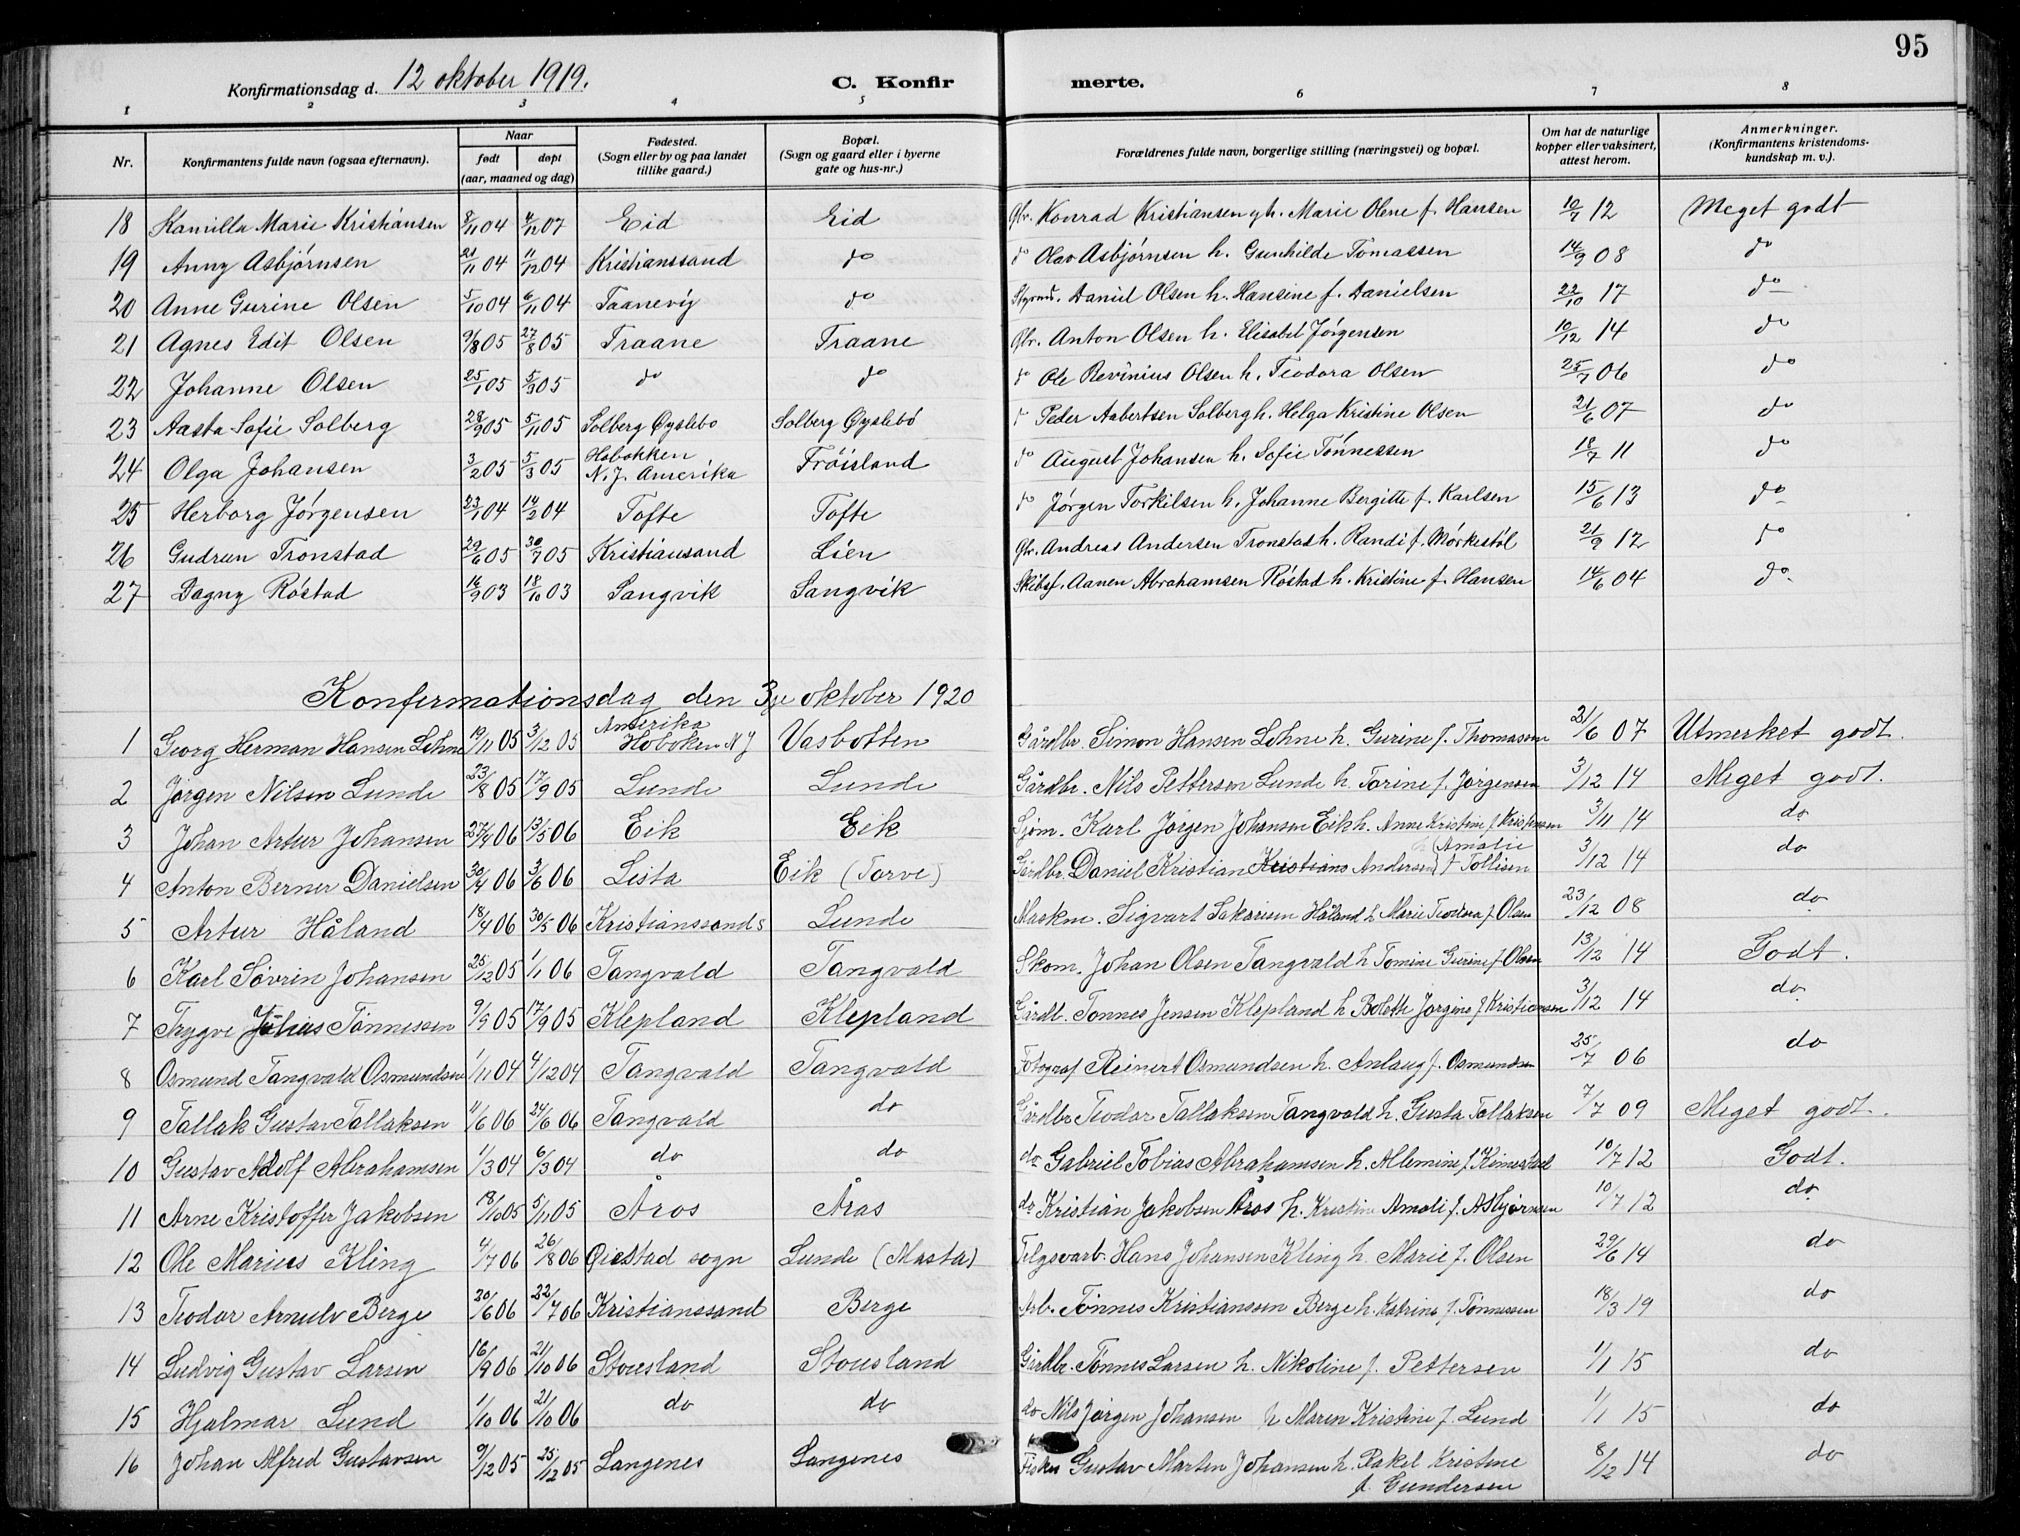 95
Konfirmationsdag d. 12 oktober 1919. C. Konfir merte.
1 2 3 4 5 6 7 8
Nr. Konfirmantens fulde navn (ogsaa efternavn). Naar født døpt (aar, maaned og dag) Fødested. (Sogn eller by og paa landet tillike gaard.) Bopæl. (Sogn og gaard eller i byerne gate og hus-nr.) Forældrenes fulde navn, borgerlige stilling (næringsvei) og bopæl. Om hat de naturlige kopper eller vaksinert, attest herom. Anmerkninger. (Konfirmantens kristendoms-kundskap m. v.).
18 Kamilla Marie Kristiansen 8/11 04 07 Eid Eid Gbr. Konrad Kristiansen og h. Marie Olene f. Hansen 10/7 12 Meget godt
19 Anny Asbjørnsen 21/11 04 11/12 04 Kristianssand do do Olav Asbjørnsen h. Gunhilde Tomassen 14/9 08 do
20 Anne Gurine Olsen 5/10 04 6/11 04 Taanevig do Styrm. Daniel Olsen h. Hansine f. Danielsen 22/10 17 do
21 Agnes Edit Olsen 9/8 05 27/8 05 Traane Traane Gbr. Anton Olsen h. Elisabet Jørgensen 10/12 14 do
22 Johanne Olsen 25/1 05 5/3 05 do do do Ole Revinius Olsen h. Teodora Olsen 25/7 06 do
23 Aasta Sofie Solberg 28/9 05 5/11 05 Solberg Øyslebø Solberg Øyslebø d Peder Aabertsen Solberg h. Helga Kristine Olsen 21/6 07 do
24 Olga Johansen 3/2 05 5/3 05 Hobokken N. J. Amerika Frøisland do August Johansen h. Sofie Tønnessen 18/7 11 do
25 Herborg Jørgensen 23/1 04 14/2 04 Tofte Tofte do Jørgen Torkilsen h. Johanne Bergitte f. Karlsen 15/6 13 do
26 Gudrun Tronstad 29/6 05 30/7 05 Kristianssand Lien Gbr. Andreas Andersen Tronstad h. Randi f. Mørkestøl 21/9 12 do
27 Dagny Røstad 16/9 03 18/10 03 Langvik Langvik Skibsf. Aanen Abrahamsen Røstad h. Kristine f. Hansen 14/6 04 do.
Konfermationsdag den 3je oktober 1920
1 Georg Herman Hansen Løhne 19/11 05 3/12 05 Amerika Hoboken N J Vasbotten Gårdbr. Simon Hansen Løhne h. Gurine f. Thomasen 21/6 07 Utmerket godt.
2 Jørgen Nilsen Lunde 23/8 05 17/9 05 Lunde Lunde Gårdbr. Nils Pettersen Lunde h. Torine f. Jørgensen 3/12 14 Meget godt.
3 Johan Artur Johansen 27/4 06 13/5 06 Eik Eik Sjøm. Karl Jørgen Johansen Eik h. Anne Kristine f Kristensen 3/11 14 do
4 Anton Berner Danielsen 30/4 06 3/6 06 Lista Eik (Torve) Gårdbr. Daniel Kristian Andersen h Amalie f Tollisen 3/12 14 do
5 Artur Håland 18/4 06 30/5 06 Kristianssand s Lunde Maskm. Sigvart Sakarisen Håland h Marie Teodora f Olsen 23/12 08 do
6 Karl Søvrin Johansen 25/12 05 1/1 06 Tangvald Tangvald Skom. Johan Olsen Tangvald h Tomine Gurine f Olsen 13/12 14 Godt.
7 Trygve Julius Tønnessen 9/9 05 17/9 05 Klepland Klepland Gårdb. Tønnes Jensen Klepland h Bolette Jorgine f Kristiansen 3/12 14 do
8 Osmund Tangvald Osmundsen 1/11 04 4/12 04 Tangvald Tangvald Fotograf Reinert Osmundsen h. Anlaug f. Osmundsen 25/7 06 do
9 Tallak Gustav Tallaksen 11/6 06 24/6 06 Tangvald do Gårdbr Teodor Tallaksen Tangvald h. Gusta Tallaksen 7/7 09 Meget godt.
10 Gustav Adolf Abrahamsen 1/3 04 6/3 04 do do do Gabriel Tobias Abrahamsen h. Allemine f. 10/7 12 Godt.
11 Arne Kristoffer Jakobsen 18/10 05 5/11 05 Åros Åros do Kristian Jakobsen Åros h. Kristine Amali f. Asbjørnsen 10/7 12 do
12 Ole Marius Kling 4/7 06 26/8 06 Øiestad sogn Lunde (Masta) Telgsvarb. Hans Johansen Kling h. Marie f. Olsen 29/6 14 do
13 Teodor Arnulv Berge 20/6 06 22/7 06 Kristianssand Berge Arb. Tønnes Kristianssen Berge h. Katrine f. Tønnessen 18/3 19 do
14 Ludvig Gustav Larsen 16/9 06 21/10 06 Stousland Stousland Gårdbr. Tønnes Larsen h. Nikoline f. Pettersen 1/1 15 do
15 Hjalmar Lund 1/10 06 21/10 06 do do do Nils Jørgen Johansen h Maren Kristine f. Lund 1/1 15 do
16 Johan Alfred Gustavsen 9/12 05 25/12 05 Langenes Langenes Fisker Gustav Marten Johansen h. Rakel Kristine f. Gundersen 8/12 14 do